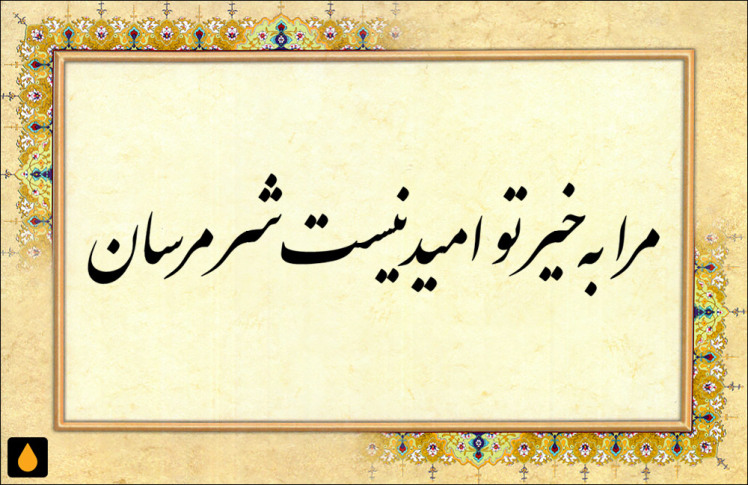 مرا به خیر تو امید نیست شر مرسان